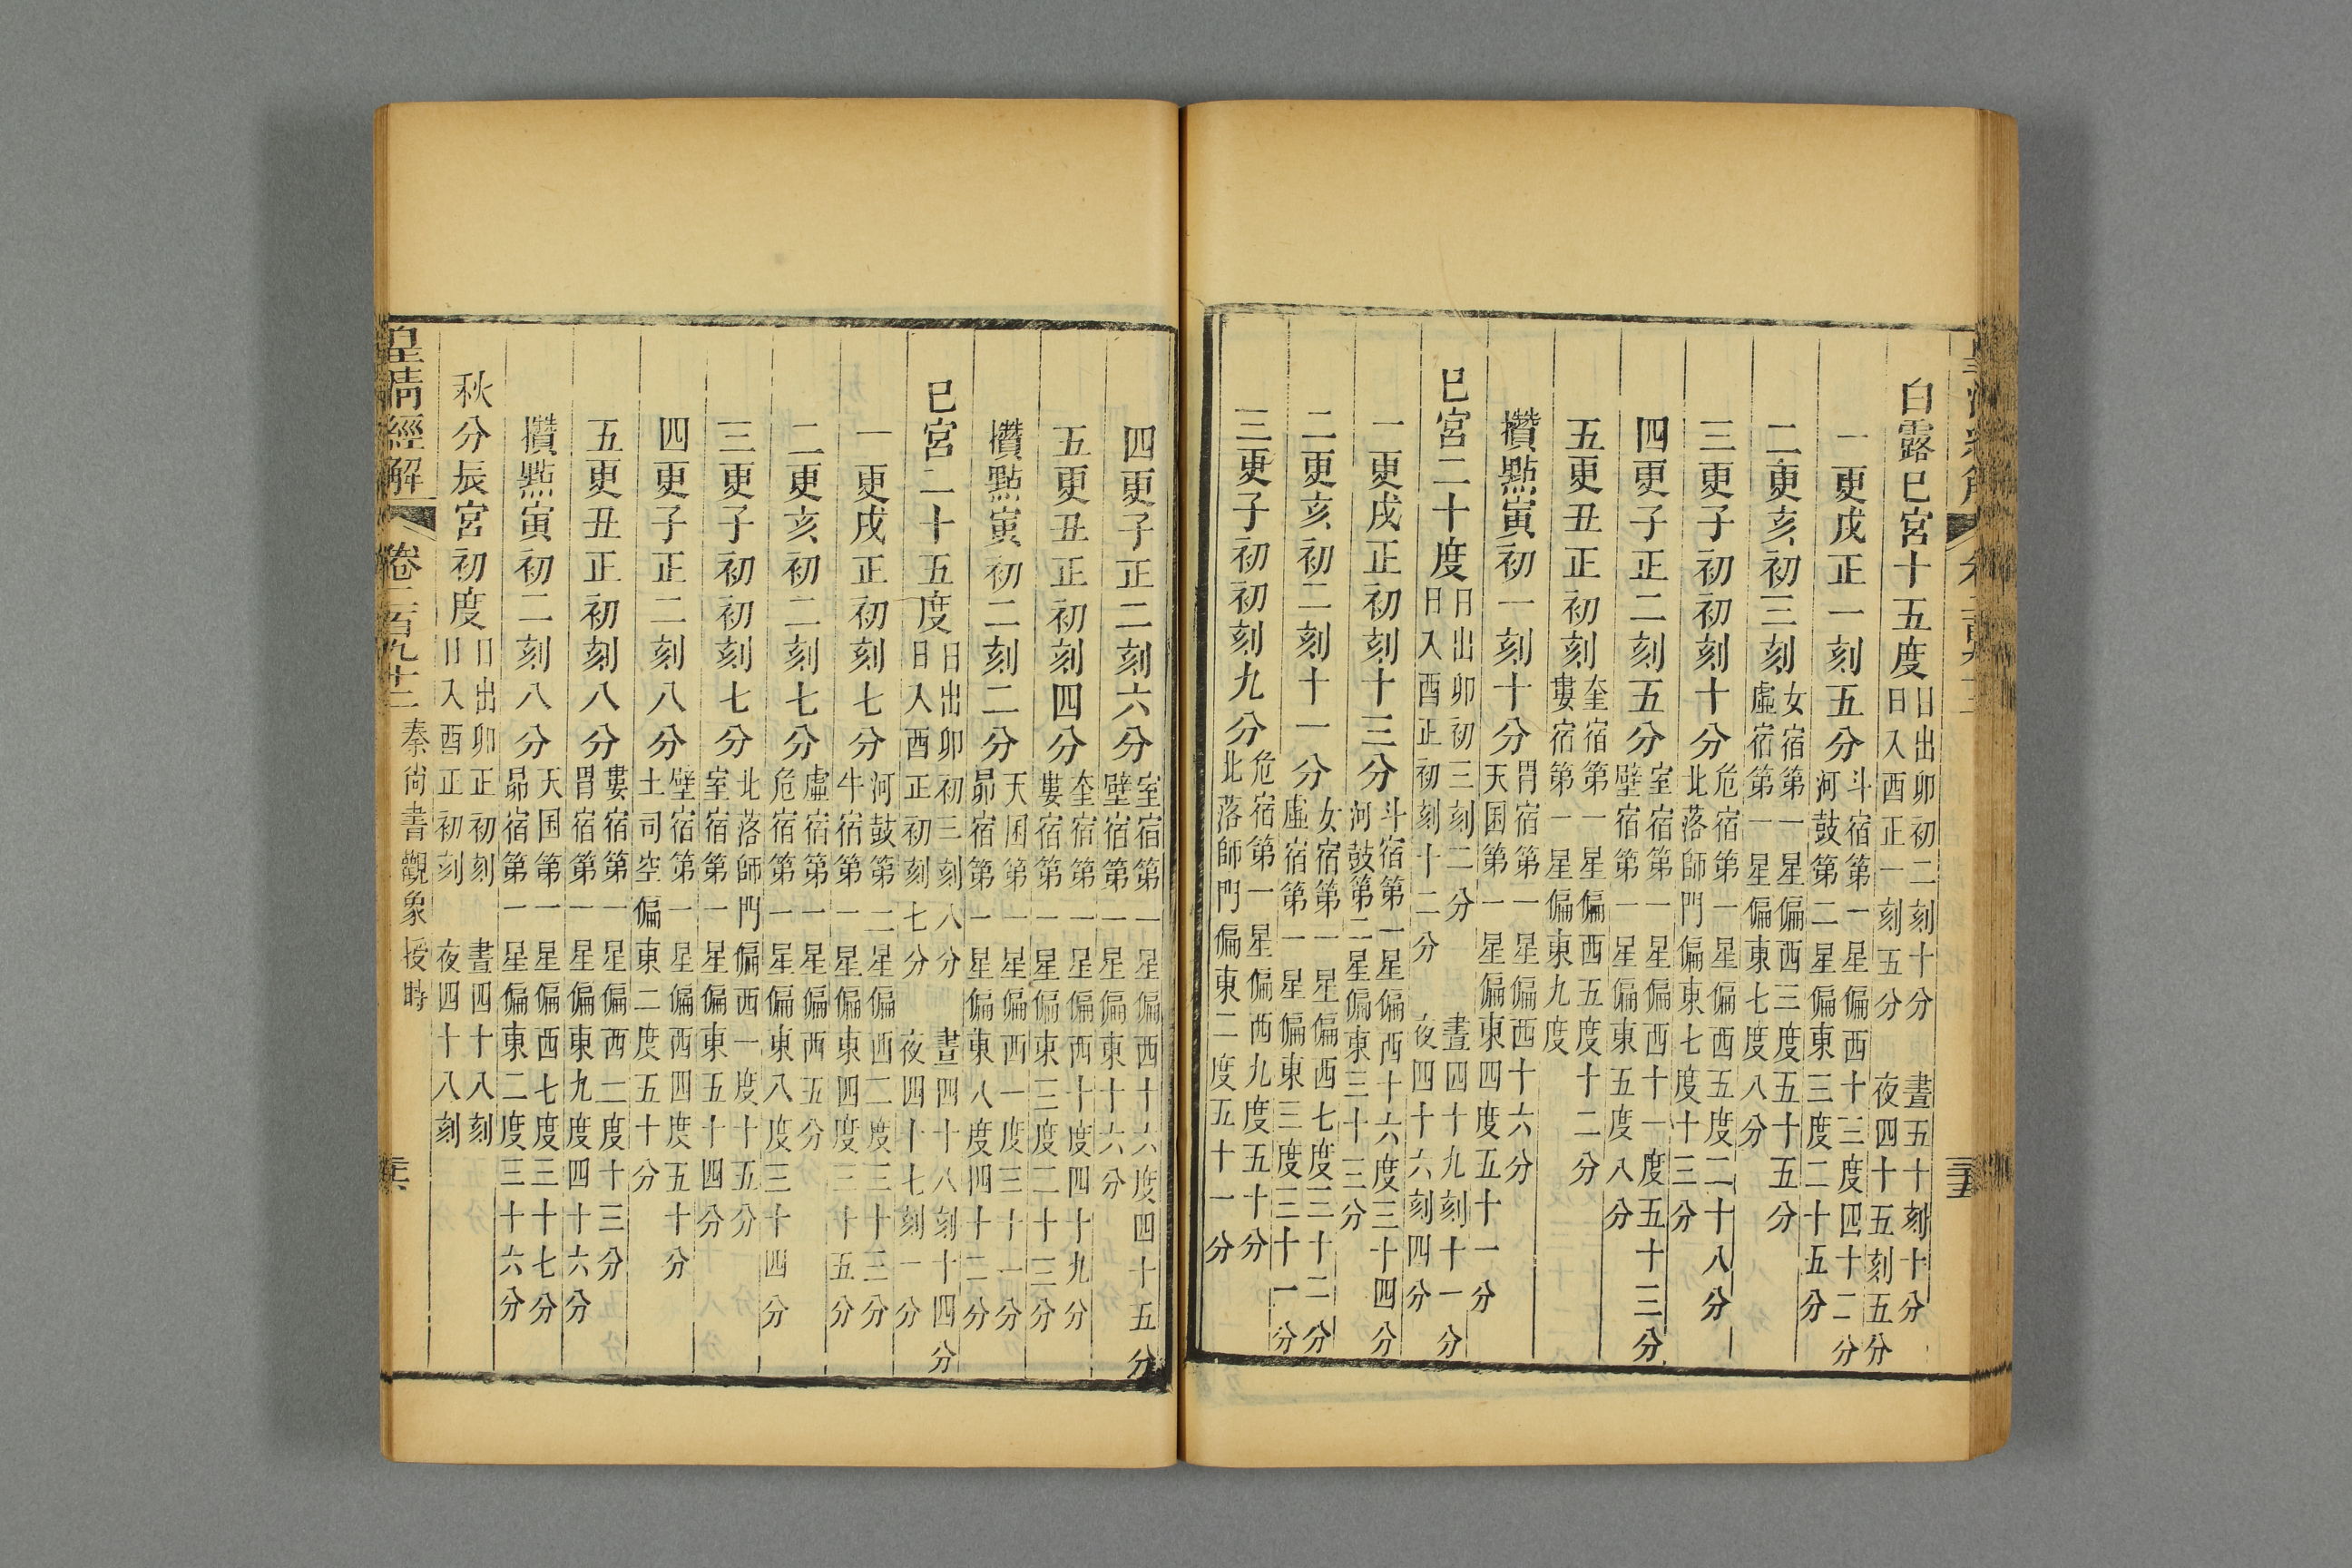 白露巳宮十五度日出卯初二刻十分　晝五十刻十分
日入酉正一刻五分　夜四十五刻五分
一更戌正一刻五分斗宿第一星偏西十三度四十二分
河鼓第二星偏東三度二十五分
二更亥初三刻女宿第一星偏西三度五十五分
虛宿第一星偏東七度八分
三更子初初刻十分危宿第一星偏西五度二十八分
北落師門偏東七度十三分
四更子正二刻五分室宿第一星偏西十一度五十三分
壁宿第一星偏東五度八分
五更丑正初刻奎宿第一星偏西五度十二分
婁宿第一星偏東九度
攢點寅初一刻十分胃宿第一星偏西十六分
天囷第一星偏東四度五十一分
巳宮二十度日出卯初三刻二分　晝四十九刻十一分
日入酉正初刻十二分　夜四十六刻四分
一更戌正初刻十三分斗宿第一星偏西十六度三十四分
河鼓第二星偏東三十三分
二更亥初二刻十一分女宿第一星偏西七度三十二分
虛宿第一星偏東三度三十一分
三更子初初刻九分危宿第一星偏西九度五十分
北落師門偏東二度五十一分
四更子正二刻六分室宿第一星偏西十六度四十五分
壁宿第一星偏東十六分
五更丑正初刻四分奎宿第一星偏西十度四十九分
婁宿第一星偏東三度二十三分
攢點寅初二刻二分天囷第一星偏西一度三十一分
昴宿第一星偏東八度四十二分
巳宮二十五度日出卯初三刻八分　晝四十八刻十四分
日入酉正初刻七分　夜四十七刻一分
一更戌正初刻七分河鼓第二星偏西二度三十三分
牛宿第一星偏東四度三十五分
二更亥初二刻七分虛宿第一星偏西五分
危宿第一星偏東八度三十四分
三更子初初刻七分北落師門偏西一度十五分
室宿第一星偏東五十四分
四更子正二刻八分壁宿第一星偏西四度五十分
土司空偏東二度五十分
五更丑正初刻八分婁宿第一星偏西二度十三分
胃宿第一星偏東九度四十六分
攢點寅初二刻八分天囷第一星偏西七度三十七分
昴宿第一星偏東二度三十六分
秋分辰宮初度日出卯正初刻　晝四十八刻
日入酉正初刻　夜四十八刻
皇清經解　卷二百九十三　秦尚書觀象授時